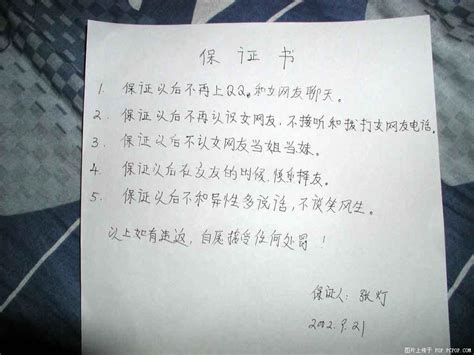 保证书
1. 保证以后不再上QQ和女网友聊天。
2. 保证以后不再认识女网友，不接听和拨打女网友电话。
3. 保证以后不认女网友当姐当妹。
4. 保证以后在交友的时候，慎重择友。
5. 保证以后不和异性多说话，不谈笑风生。
以上如有违返，自愿接受任何处罚！
保证人：张灯
2002.9.21
图片上传于 POP.PCPOP.COM